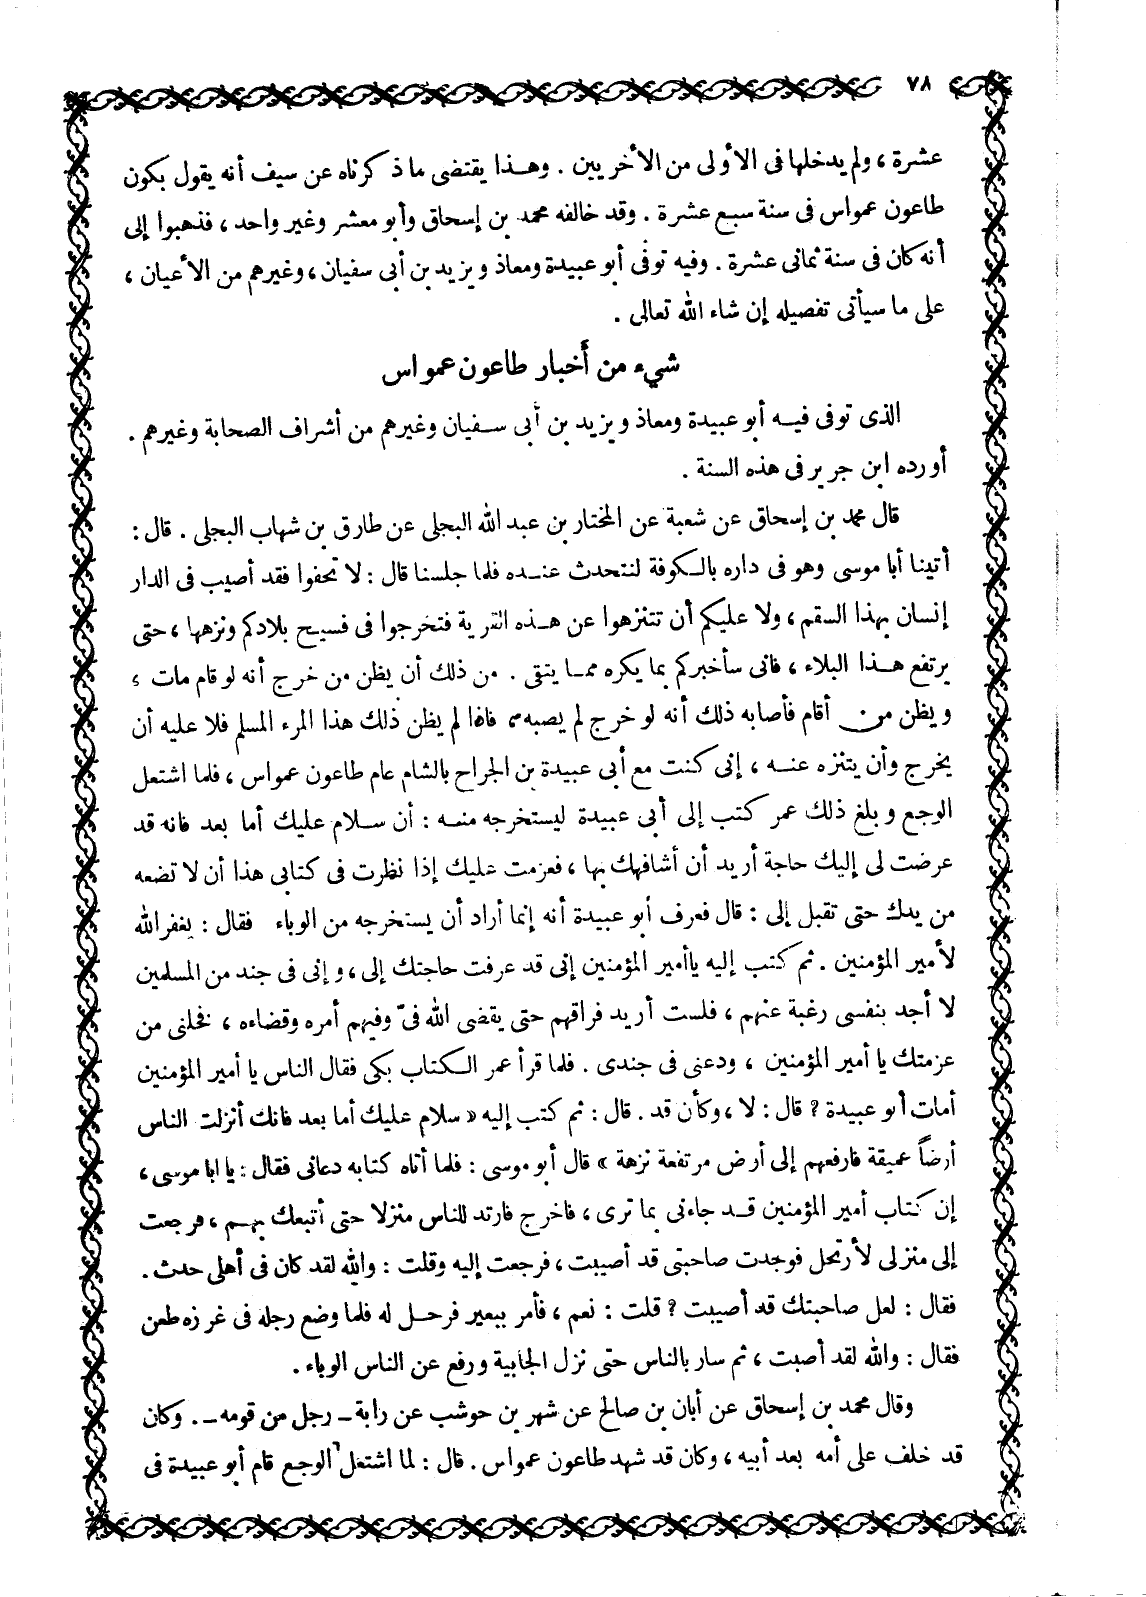 ٧٨
عشرة ، ولم يدخلها فى الأولى من الأخريين . وهـذا يقتضى ما ذكرناه عن سيف أنه يقول بكون
طاعون عمواس فى سنة سبع عشرة . وقد خالفه محمد بن إسحاق وأبو معشر وغير واحد ، فذهبوا إلى
أنه كان فى سنة ثمانى عشرة . وفيه توفى أبو عبيدة ومعاذ ويزيد بن أبى سفيان ، وغيرهم من الأعيان ،
على ما سيأتى تفصيله إن شاء الله تعالى .
شيء من أخبار طاعون عمواس
الذى توفى فيـه أبو عبيدة ومعاذ ويزيد بن أبى سـفيان وغيرهم من أشراف الصحابة وغيرهم .
أورده ابن جرير فى هذه السنة .
قال محمد بن إسحاق عن شعبة عن المختار بن عبد الله البجلى عن طارق بن شهاب البجلى . قال :
أتينا أبا موسى وهو فى داره بالـكوفة لنتحدث عنـده فلما جلسنا قال : لا تحفوا فقد أصيب فى الدار
إنسان بهذا السقم ، ولا عليكم أن تتنزهوا عن هـذه القرية فتخرجوا فى فسيح بلادكم ونزهها ، حتى
يرتفع هـذا البلاء ، فانى سأخبركم بما يكره ممـا يتقى . من ذلك أن يظن من خرج أنه لو قام مات ،
ويظن من أقام فأصابه ذلك أنه لو خرج لم يصبه ، فاذا لم يظن ذلك هذا المرء المسلم فلا عليه أن
يخرج وأن يتنزه عنـه ، إنى كنت مع أبى عبيدة بن الجراح بالشام عام طاعون عمواس ، فلما اشتعل
الوجع وبلغ ذلك عمر كتب إلى أبى عبيدة ليستخرجه منـه : أن سـلام عليك أما بعد فانه قد
عرضت لى إليك حاجة أريد أن أشافهك بها ، فعزمت عليك إذا نظرت فى كتابى هذا أن لا تضعه
من يدك حتى تقبل إلى : قال فعرف أبو عبيدة أنه إنما أراد أن يستخرجه من الوباء فقال : يغفر الله
لأمير المؤمنين . ثم كتب إليه يا أمير المؤمنين إنى قد عرفت حاجتك إلى ، وإنى فى جند من المسلمين
لا أجد بنفسى رغبة عنهم ، فلست أريد فراقهم حتى يقضى الله فىّ وفيهم أمره وقضاءه ، فخلنى من
عزمتك يا أمير المؤمنين ، ودعنى فى جندى . فلما قرأ عمر الـكتاب بكى فقال الناس يا أمير المؤمنين
أمات أبو عبيدة ? قال : لا ، وكأن قد . قال : ثم كتب إليه « سلام عليك أما بعد فانك أنزلت الناس
أرضاً عميقة فارفعهم إلى أرض مرتفعة نزهة » قال أبو موسى : فلما أتاه كتابه دعانى فقال : يا ابا موسى ،
إن كتاب أمير المؤمنين قـد جاءنى بما ترى ، فاخرج فارتد للناس منزلا حتى أتبعك بهـم ، فرجعت
إلى منزلى لأرتحل فوجدت صاحبتى قد أصيبت ، فرجعت إليه وقلت : والله لقد كان فى أهلى حدث .
فقال : لعل صاحبتك قد أصيبت ? قلت : نعم ، فأمر ببعير فرحـل له فلما وضع رجله فى غرزه طعن
فقال : والله لقد أصبت ، ثم سار بالناس حتى نزل الجابية ورفع عن الناس الوباء .
وقال محمد بن إسحاق عن أبان بن صالح عن شهر بن حوشب عن رابة ـ رجل من قومه ـ . وكان
قد خلف على أمه بعد أبيه ، وكان قد شهد طاعون عمواس . قال : لما اشتعل الوجع قام أبو عبيدة فى